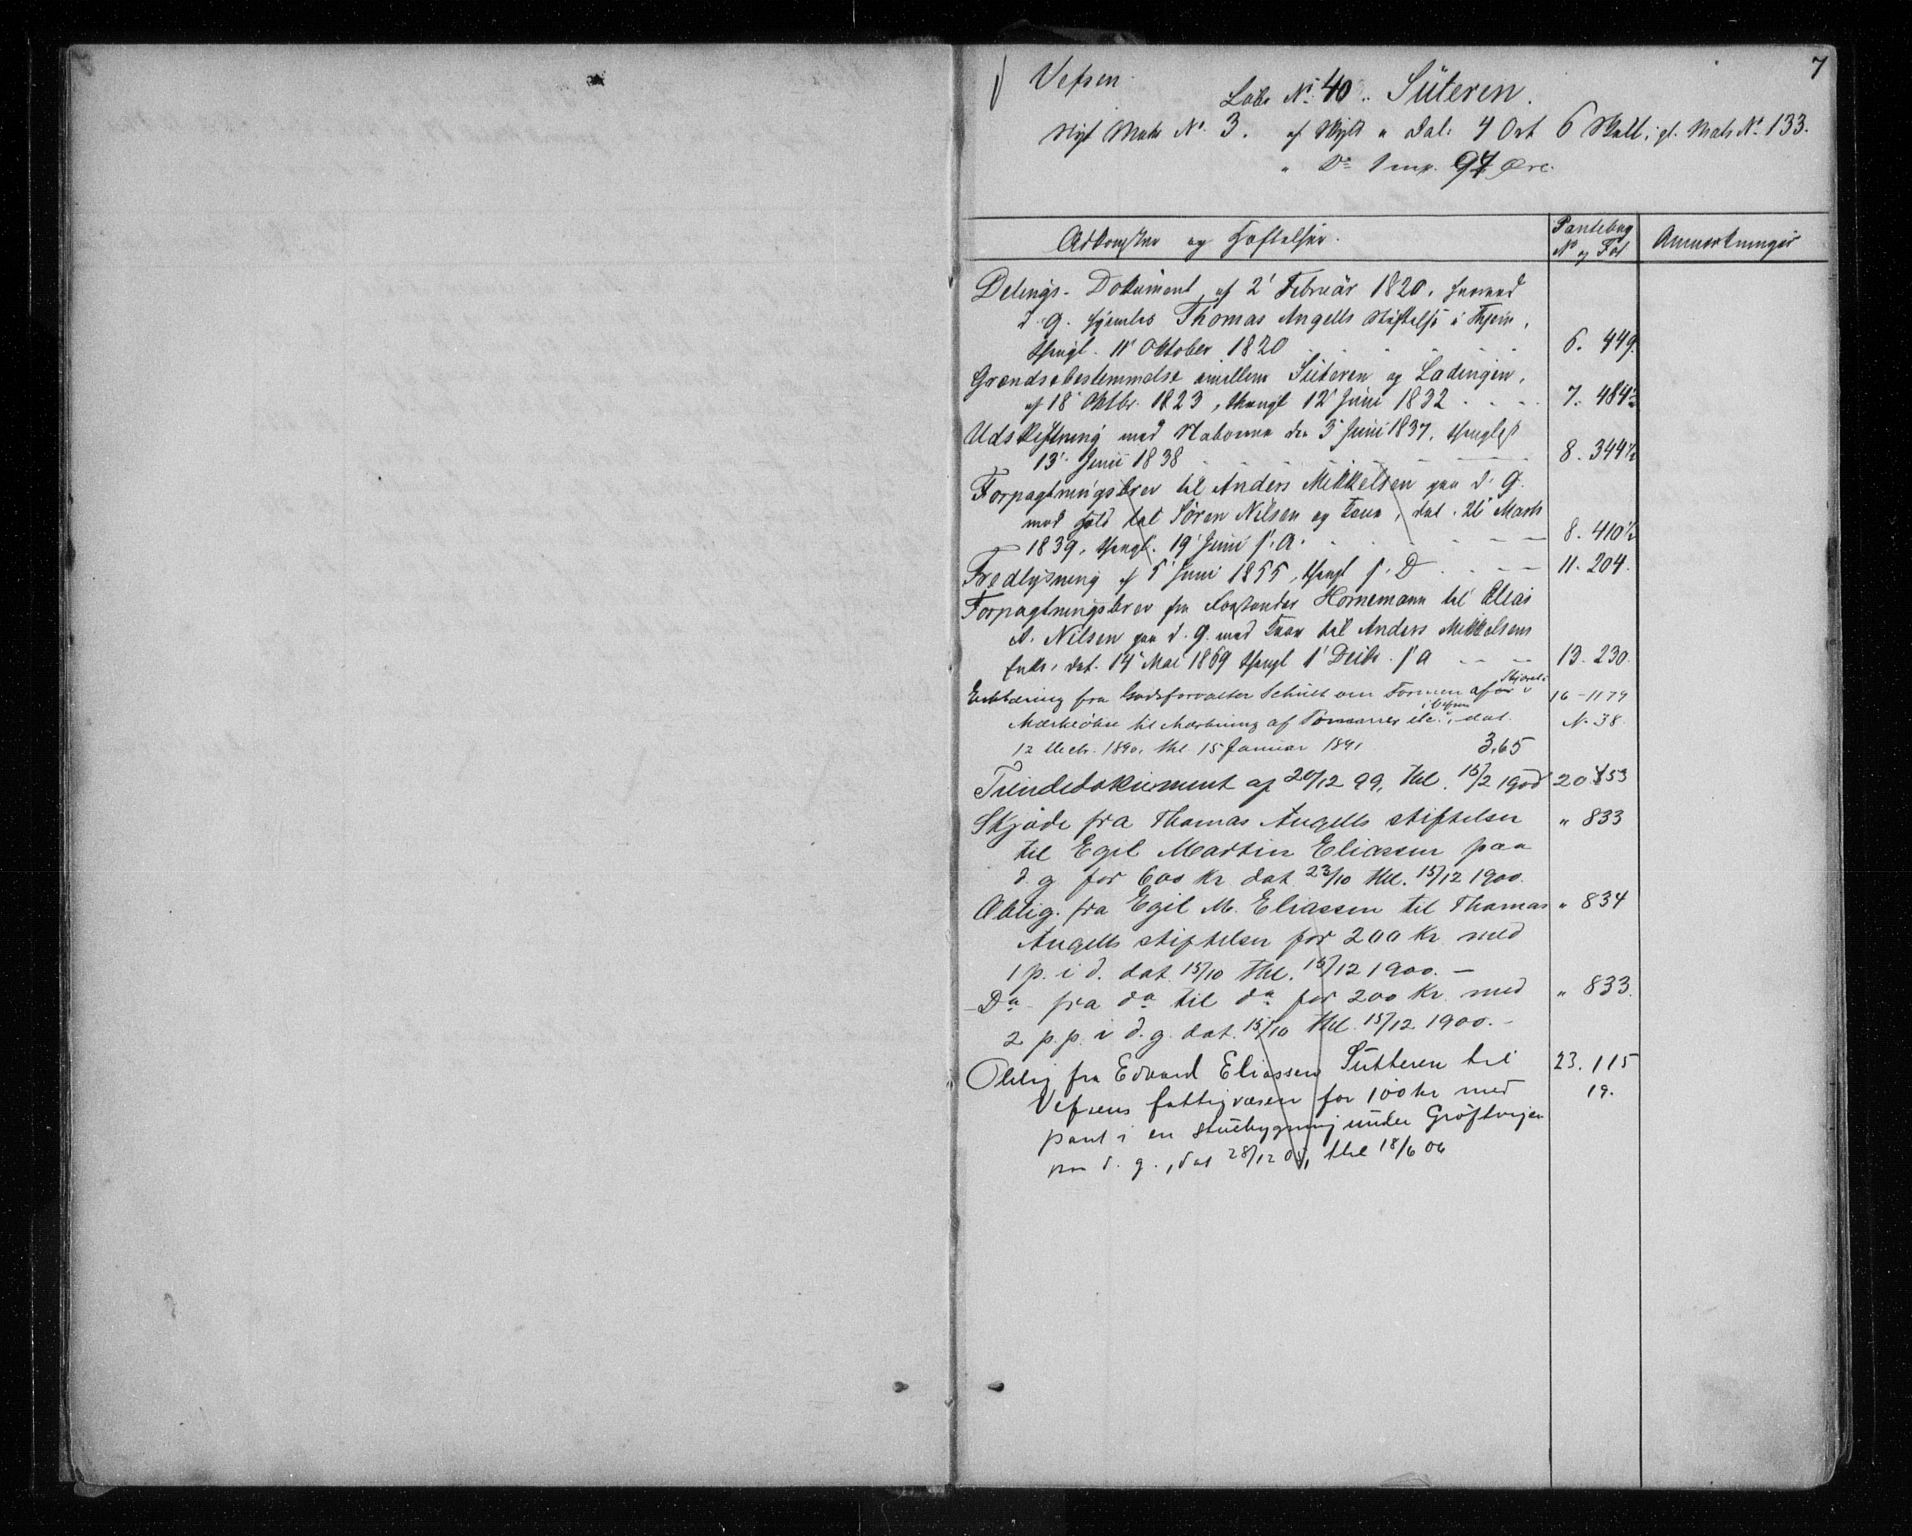 7
Vefsen
Løbe No 40. Süteren.
Nyt Matr No. 3. af Skyld " Dal: 4 Ort 6 Skill: gl. Matr No. 133.
" Do 1 mrk. 97 Øre.
Adkomster og Hæftelser. Pantebog No og Fol Anmærkninger
Delings-Dokument af 2' Februar 1820, hvorved
d. g. hjemles Thomas Angells Stiftelse i Thjem,
thingl. 11' Oktober 1820 6. 449.
Grændsebestemmelse imellem Süteren og Ladingen,
af 18' Oktbr. 1823, thingl 12' Juni 1832 7. 484½
Udskiftning med Naboerne den 3' Juni 1837, thinglyst
13' Juni 1838 8. 344½
Forpagtningsbrev til Anders Mikkelsen paa d. g.
med Hold til Søren Nilsen og Kone, dat. 26' Marts
1839, thingl. 19' Juni s. A. 8. 410½
Fredlysning af 5' Juni 1855, thingl s. D 11. 204.
Forpagtningsbrev fra Forstander Hornemann til Elias
A. Nilsen paa d. g. med Kaar til Anders Mikkelsens
Enke, dat. 14' Mai 1869 thingl 1' Decbr. s. A 13. 230.
Erklæring fra Godsforvalter Schult om Formen af for i 16-1179
Mærkeøkse til Mærkning af Tømmer etc. i Vefsen, dat. N. 38.
12 Decbr. 1890, thl 15 Januar 1891 3.65
Tiendedokument af 20/12 99, thl. 15/2 1900 20 453
Skjøde fra Thomas Angells stiftelser " 833
til Egil Martin Eliassen paa
d. g for 600 kr dat 23/10 thl. 15/12 1900.
Oblig. fra Egil M. Eliassen til Thomas " 834
Angells stiftelser for 200 kr med
1 p. i d. dat 15/10 thl. 15/12 1900. —
Do fra do til do for 200 kr med " 833.
2 p. p. i d. g. dat. 15/10 thl. 15/12 1900. —
Oblig fra Edvard Eliassen Sutteren til 23. 115
Vefsens fattigvæsen for 100 kr med 19.
pant i en stuebygning under Grøftvejen
paa d. g., dat 28/12 05, thl 18/6 06